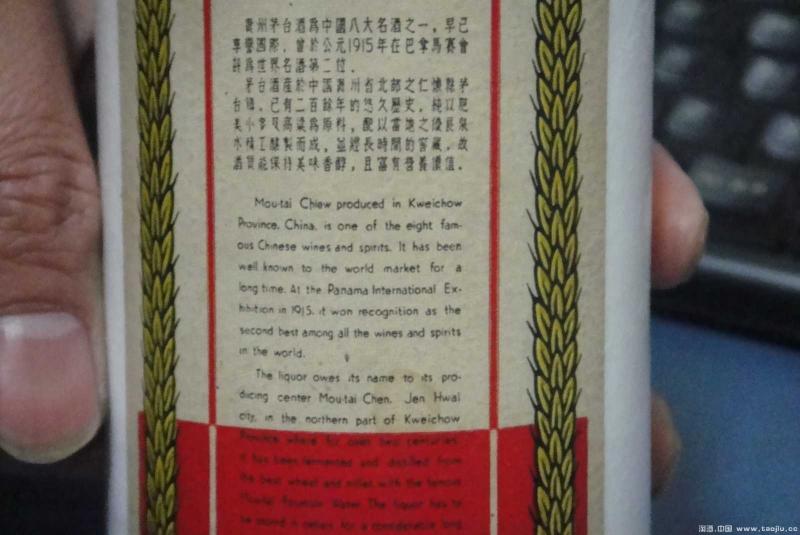 貴州茅台酒爲中國八大名酒之一，早已
享譽國際，曾於公元1915年在巴拿馬賽會
評爲世界名酒第二位。
茅台酒產於中國貴州省北部之仁懷縣茅
台鎮，已有二百餘年的悠久歷史，純以肥
美小麥及高粱爲原料，配以當地之優良泉
水精工釀製而成，並經長時間的窖藏，故
酒質能保持美味香醇，且富有營養價值。
Mou-tai Chiew produced in Kweichow
Province, China, is one of the eight fam-
ous Chinese wines and spirits. It has been
well known to the world market for a
long time. At the Panama International Ex-
hibition in 1915, it won recognition as the
second best among all the wines and spirits
in the world.
The liquor owes its name to its pro-
ducing center Mou-tai Chen, Jen Hwai
city, in the northern part of Kweichow
Province where for over two centuries
it has been fermented and distilled from
the best wheat and millet with the famous
Moutai Fountain Water. The liquor has to
be stored in cellars for a considerable long
淘酒.中国 www.taojiu.cc